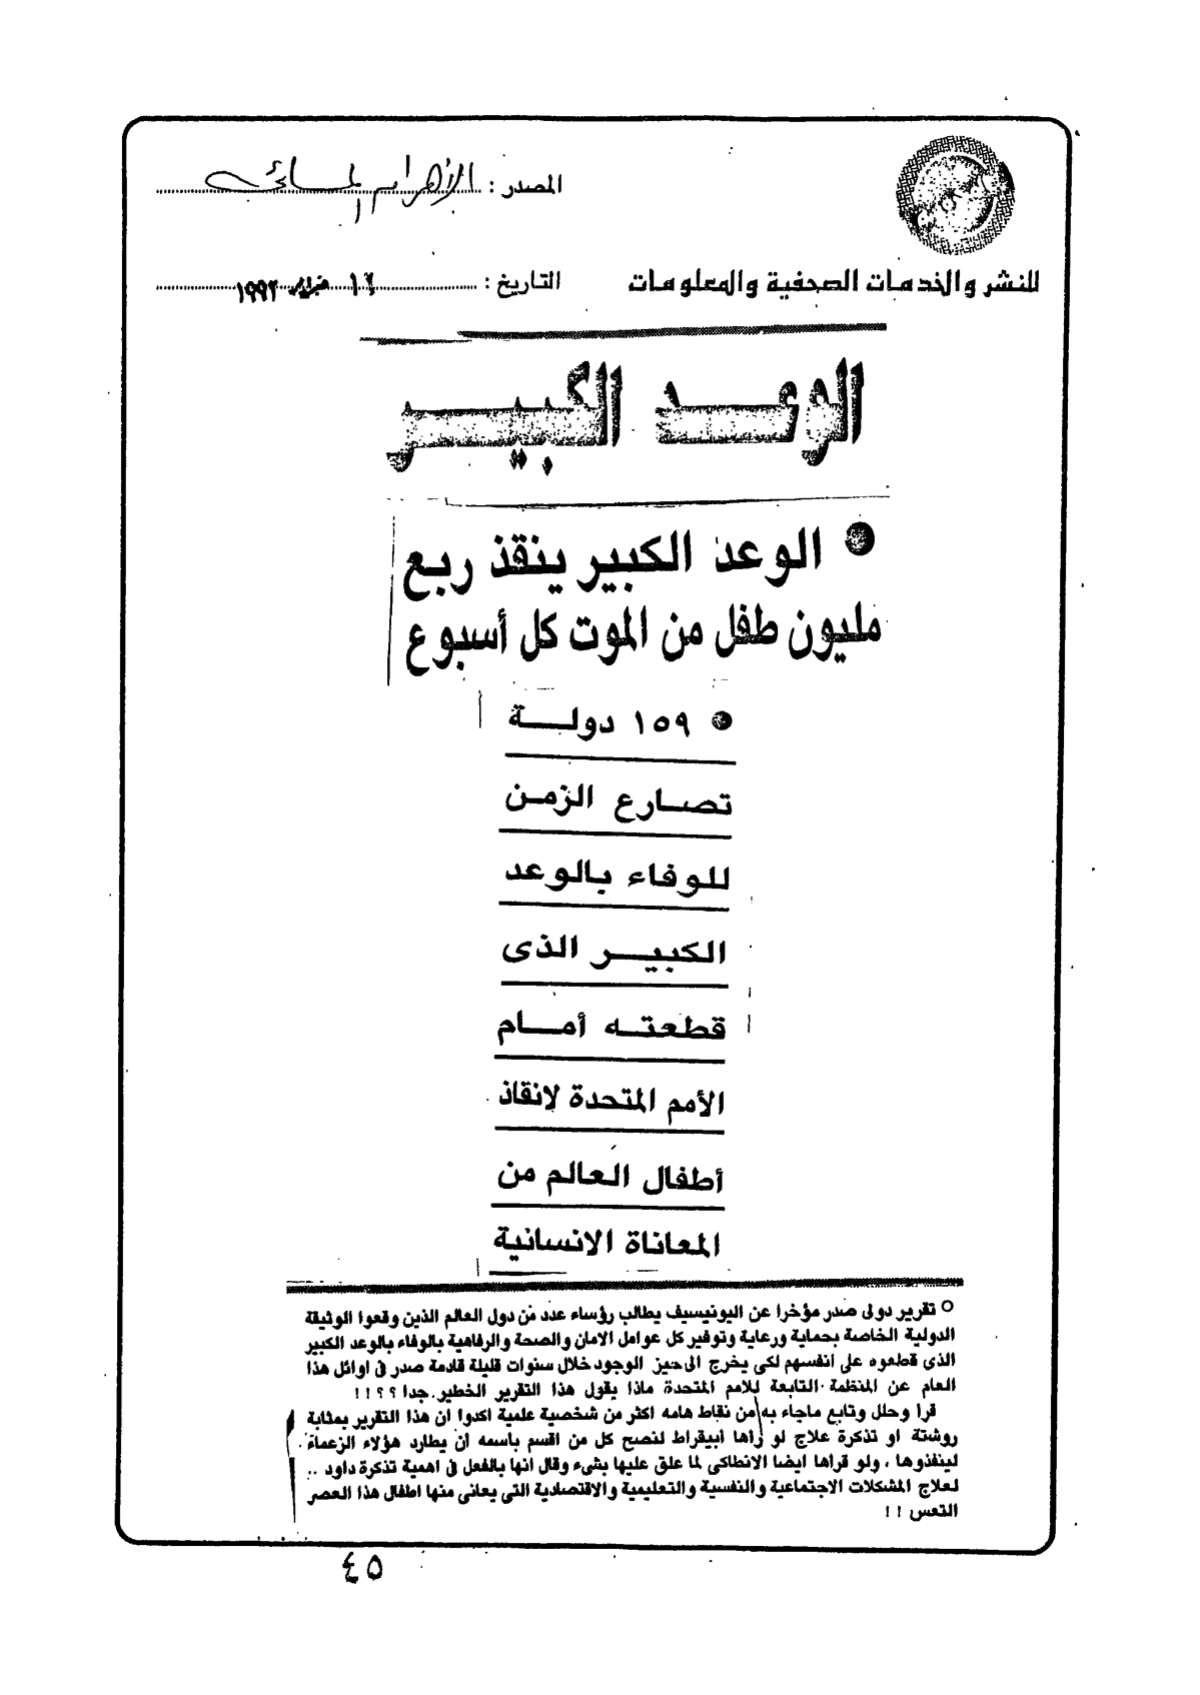 المصدر : الأهرام المسائى
للنشر والخدمات الصحفية والمعلومات
التاريخ : ١٦ فبراير ١٩٩٢
الوعد الكبير
● الوعد الكبير ينقذ ربع
مليون طفل من الموت كل أسبوع
● ١٥٩ دولة
تصارع الزمن
للوفاء بالوعد
الكبير الذى
قطعته أمام
الأمم المتحدة لانقاذ
أطفال العالم من
المعاناة الانسانية
○ تقرير دولى صدر مؤخرا عن اليونيسيف يطالب رؤساء عدد من دول العالم الذين وقعوا الوثيقة
الدولية الخاصة بحماية ورعاية وتوفير كل عوامل الامان والصحة والرفاهية بالوفاء بالوعد الكبير
الذى قطعوه على انفسهم لكى يخرج الى حيز الوجود خلال سنوات قليلة قادمة صدر فى اوائل هذا
العام عن المنظمة التابعة للامم المتحدة ماذا يقول هذا التقرير الخطير جدا ؟؟!!
قرا وحلل وتابع ماجاء به من نقاط هامه اكثر من شخصية علمية اكدوا ان هذا التقرير بمثابة
روشتة او تذكرة علاج لو رأها أبيقراط لنصح كل من اقسم بأسمه ان يطارد هؤلاء الزعماء
لينفذوها ، ولو قراها ايضا الانطاكى لما علق عليها بشىء وقال انها بالفعل فى اهمية تذكرة داود ..
لعلاج المشكلات الاجتماعية والنفسية والتعليمية والاقتصادية التى يعانى منها اطفال هذا العصر
التعس !!
٤٥